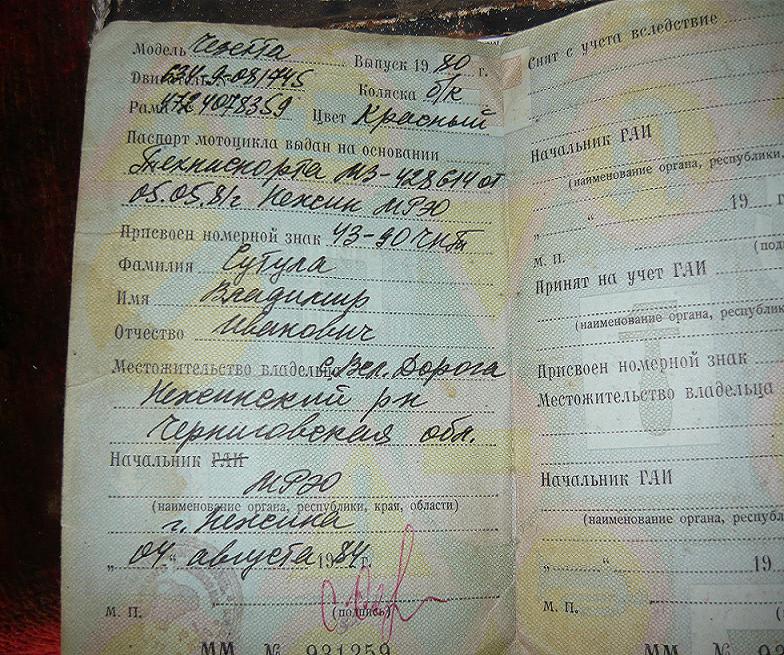 Модель Чезетта Выпуск 19 80 г.
Двигатель 634-9-081745 Коляска б/к
Рама 4724078359 Цвет Красный
Паспорт мотоцикла выдан на основании
Техпаспорта МЗ-428614 от
05.05.81г Нежин МРЭО
Присвоен номерной знак 43-90 ЧНБ
Фамилия Сутула
Имя Владимир
Отчество Иванович
Местожительство владельца с. Вел. Дорога
Нежинский р-н
Черниговская обл.
Начальник ГАИ
МРЭО
(наименование органа, республики, края, области)
г. Нежина
„ 04 “ августа 1984 г.
(подпись)
М. П.
ММ № 931259
Снят с учета вследствие
Начальник ГАИ
(наименование органа, республики,
„ “ 19 г
М. П.
Принят на учет ГАИ
(наименование органа, республики
Присвоен номерной знак
Местожительство владельца
Начальник ГАИ
(наименование органа, респуб
„ “ 19
М. П.
ММ № 93